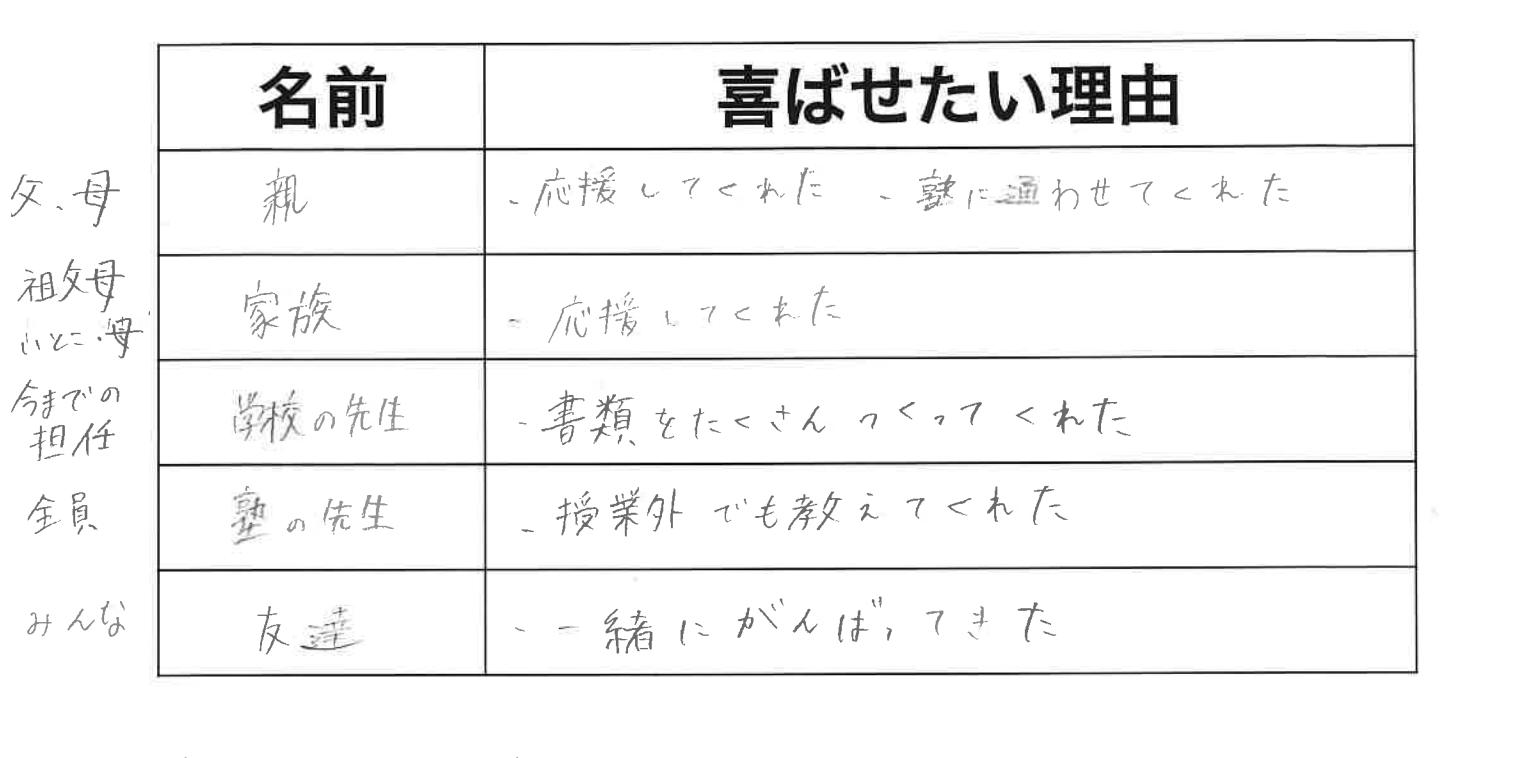 名前 喜ばせたい理由
父、母 親 ・応援してくれた ・塾に通わせてくれた
祖父母
いとこ・母 家族 ・応援してくれた
今までの
担任 学校の先生 ・書類をたくさんつくってくれた
全員 塾の先生 ・授業外でも教えてくれた
みんな 友達 ・一緒にがんばってきた